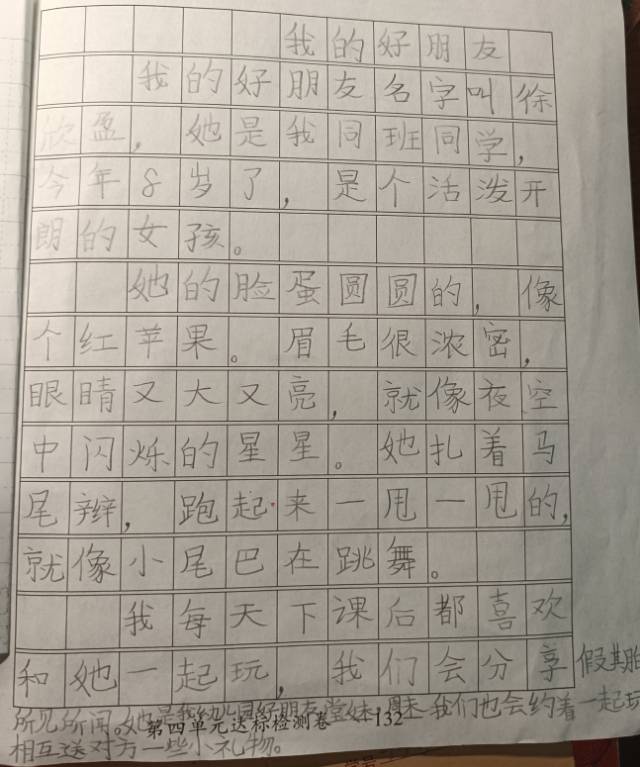 我的好朋友
我的好朋友名字叫徐
欣盈，她是我同班同学，
今年8岁了，是个活泼开
朗的女孩。
她的脸蛋圆圆的，像
个红苹果。眉毛很浓密，
眼睛又大又亮，就像夜空
中闪烁的星星。她扎着马
尾辫，跑起来一甩一甩的，
就像小尾巴在跳舞。
我每天下课后都喜欢
和她一起玩，我们会分享假其胎
所见所闻。她是我幼儿园好朋友堂妹，周末我们也会约着一起玩
第四单元达标检测卷 132
相互送对方一些小礼物。